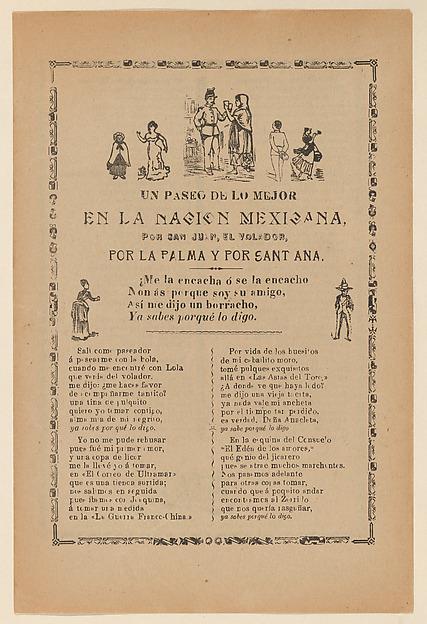 UN PASEO DE LO MEJOR
EN LA NACION MEXICANA,
POR SAN JUAN, EL VOLADOR,
POR LA PALMA Y POR SANT ANA.
¿Me la encacha ó se la encacho
Nomás porque soy su amigo,
Así me dijo un borracho,
Ya sabes porqué lo digo.
Salí como paseador
á pasearme con la bola,
cuando me encontré con Lola
que venía del volador.
me dijo: ¿me haces favor
de acompañarme tantito?
una tina de pulquito
quiero yo tomar contigo,
alma mía de mi negrito,
ya sabes por qué lo digo.
Yo no me pude rehusar
pues fué mi primer amor,
y una copa de licor
me la llevé yo á tomar,
en «El Correo de Ultramar»
que es una tienda surtida;
nos salimos en seguida
pues íbamos con Joaquina,
á tomar una medida
en la «La Guerra Franco-China.»
Por vida de los huesitos
de mi caballito moro,
tomé pulques exquisitos
allá en «Las Astas del Toro;»
¿A donde ve que haya lodo?
me dijo una vieja tuerta,
ya nada vale mi ancheta
por el tiempo tan perdido,
es verdad, Doña Anacleta,
ya sabe porqué lo digo
En la esquina del Consuelo
"El Edén de los amores,"
qué genio del jicarero
pues se atrae muchos marchantes.
Nos pasamos adelante
para otras cosas tomar,
cuando que á poquito andar
encontramos al Zorrillo
que nos quería rasguñar,
ya sabes porqué lo digo.